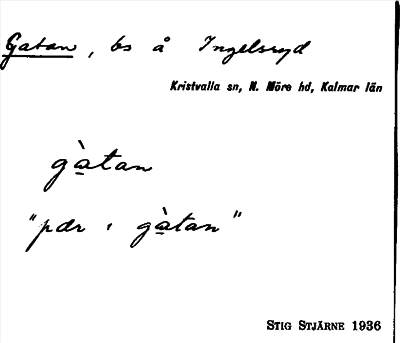 Gatan, bs å Ingelsryd
Kristvalla sn, N. Möre hd, Kalmar län
gàtan
"pær i gàtan"
STIG STJÄRNE 1936